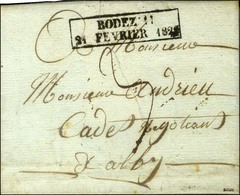 RODEZ 11
21 FEVRIER 182
A Monsieur
Monsieur Andrieu
Cadet negotiant
d'alby